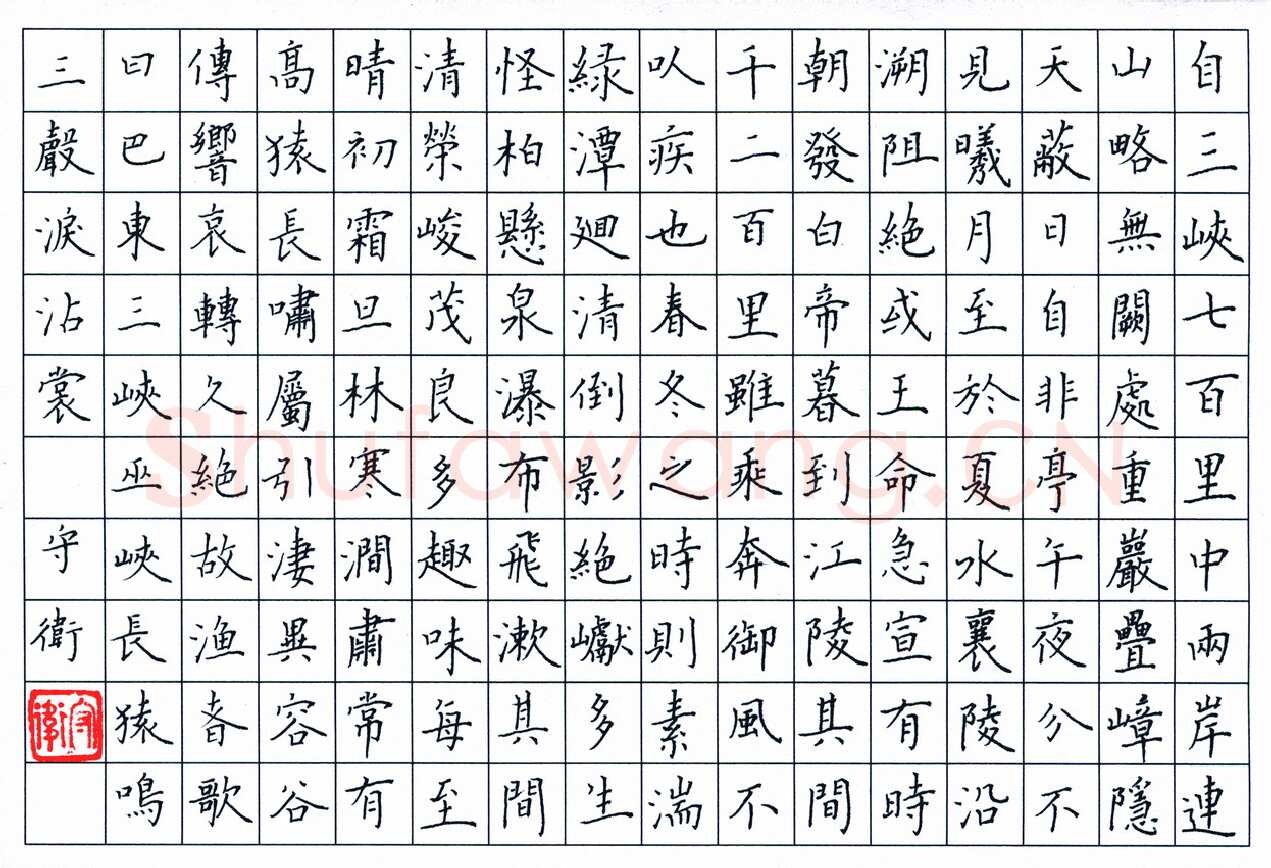 自三峽七百里中兩岸連
山略無闕處重巖疊嶂隱
天蔽日自非亭午夜分不
見曦月至於夏水襄陵沿
溯阻絕或王命急宣有時
朝發白帝暮到江陵其間
千二百里雖乘奔御風不
以疾也春冬之時則素湍
綠潭廻清倒影絕巘多生
怪柏懸泉瀑布飛漱其間
清榮峻茂良多趣味每至
晴初霜旦林寒澗肅常有
高猿長嘯屬引淒異容谷
傳響哀轉久絕故漁者歌
曰巴東三峽巫峽長猿鳴
三聲淚沾裳
守衛
Shufawang.CN